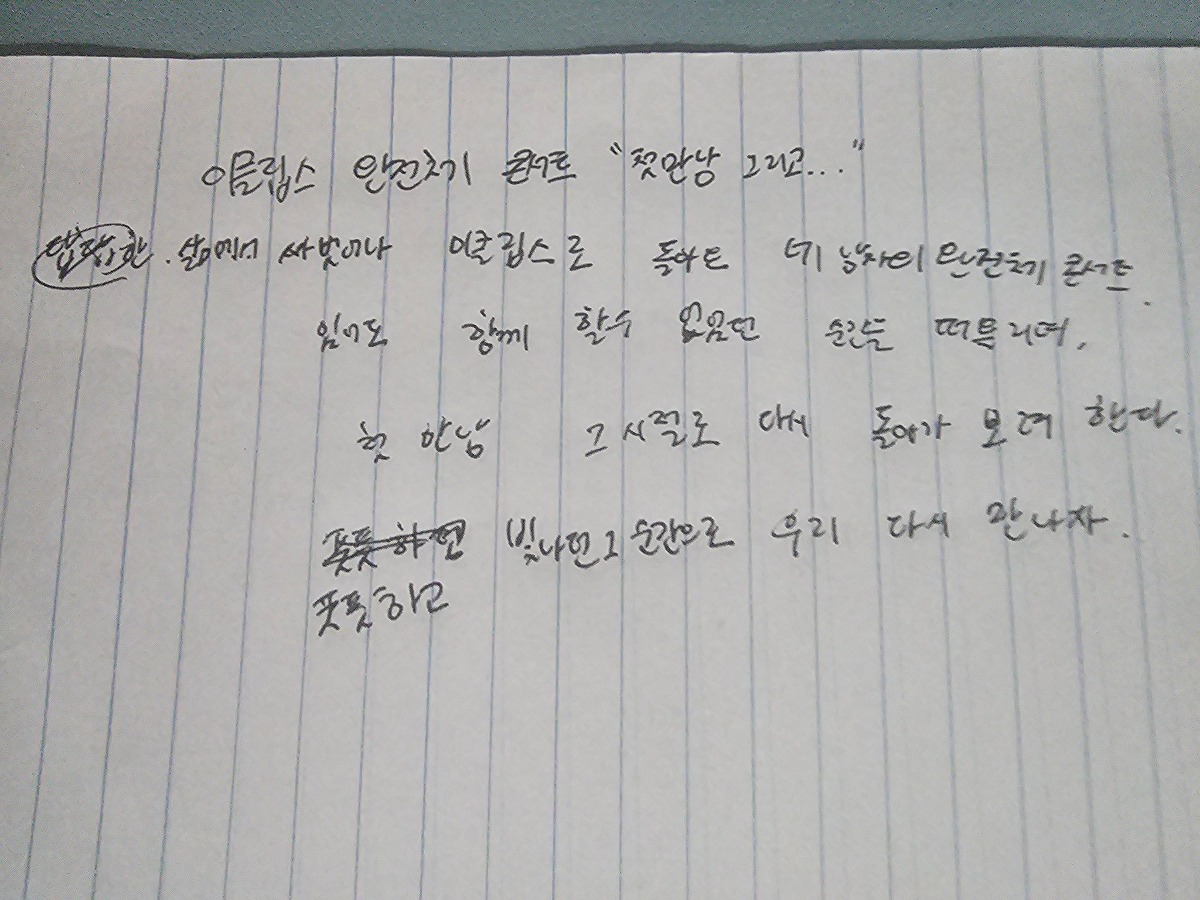 이클립스 완전체기 콘서트 "첫만남 그리고..."
답답한. 삶에서 싸벗어나 이클립스로 돌아온 네 남자의 완전체기 콘서트.
임에도 함께 할수 없었던 순간들 떠올리며,
첫 만남 그 시절로 다시 돌아가 보려 한다.
풋풋하던 빛나던 그 순간으로 우리 다시 만나자.
풋풋하고